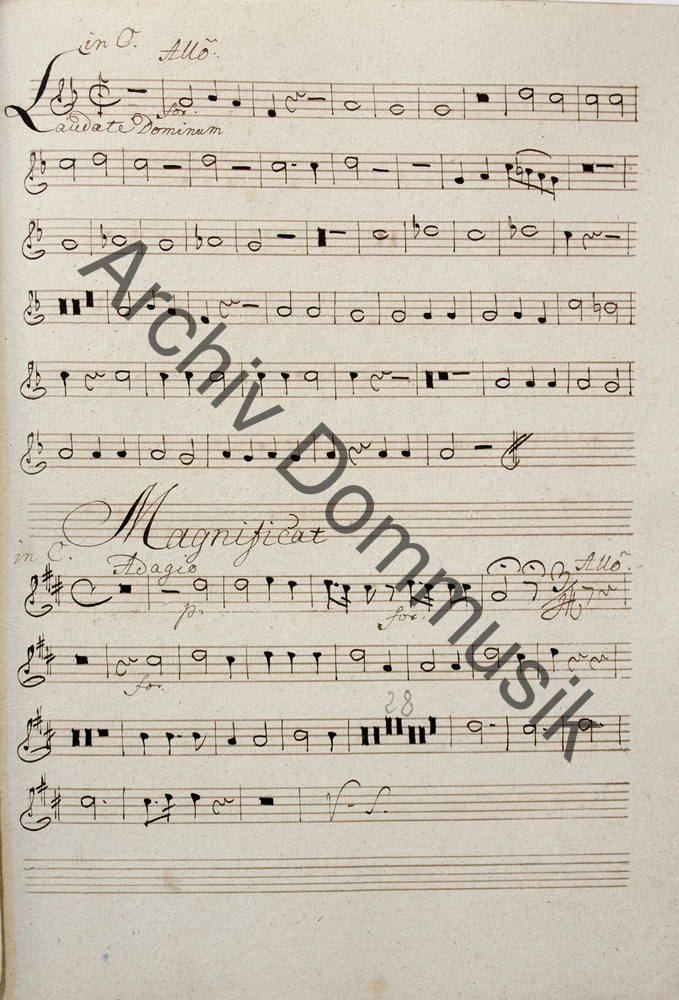 in C. Allo:
for:
Laudate Dominum
Magnificat
in C.
Adagio Allo:
p:
for:
for:
28
V. S.
Archiv Dommusik